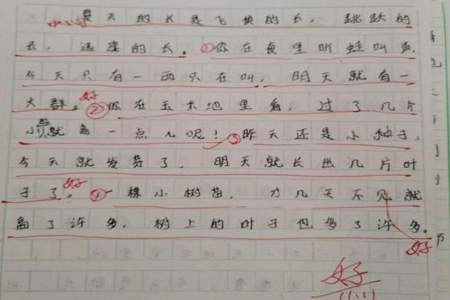 夏天的长是飞快的长，跳跃的
长，活泼的长。①你在夜里听蛙叫声，
今天只有一两只在叫，明天就有一
大群。②你在玉米地里看，过了几天
就高一点儿呢！③昨天还是小种子，
今天就发芽了，明天就长出几片叶
子了。④一棵小树苗，几天不见就
高了许多，树上的叶子也多了许多。
好
好
好
好